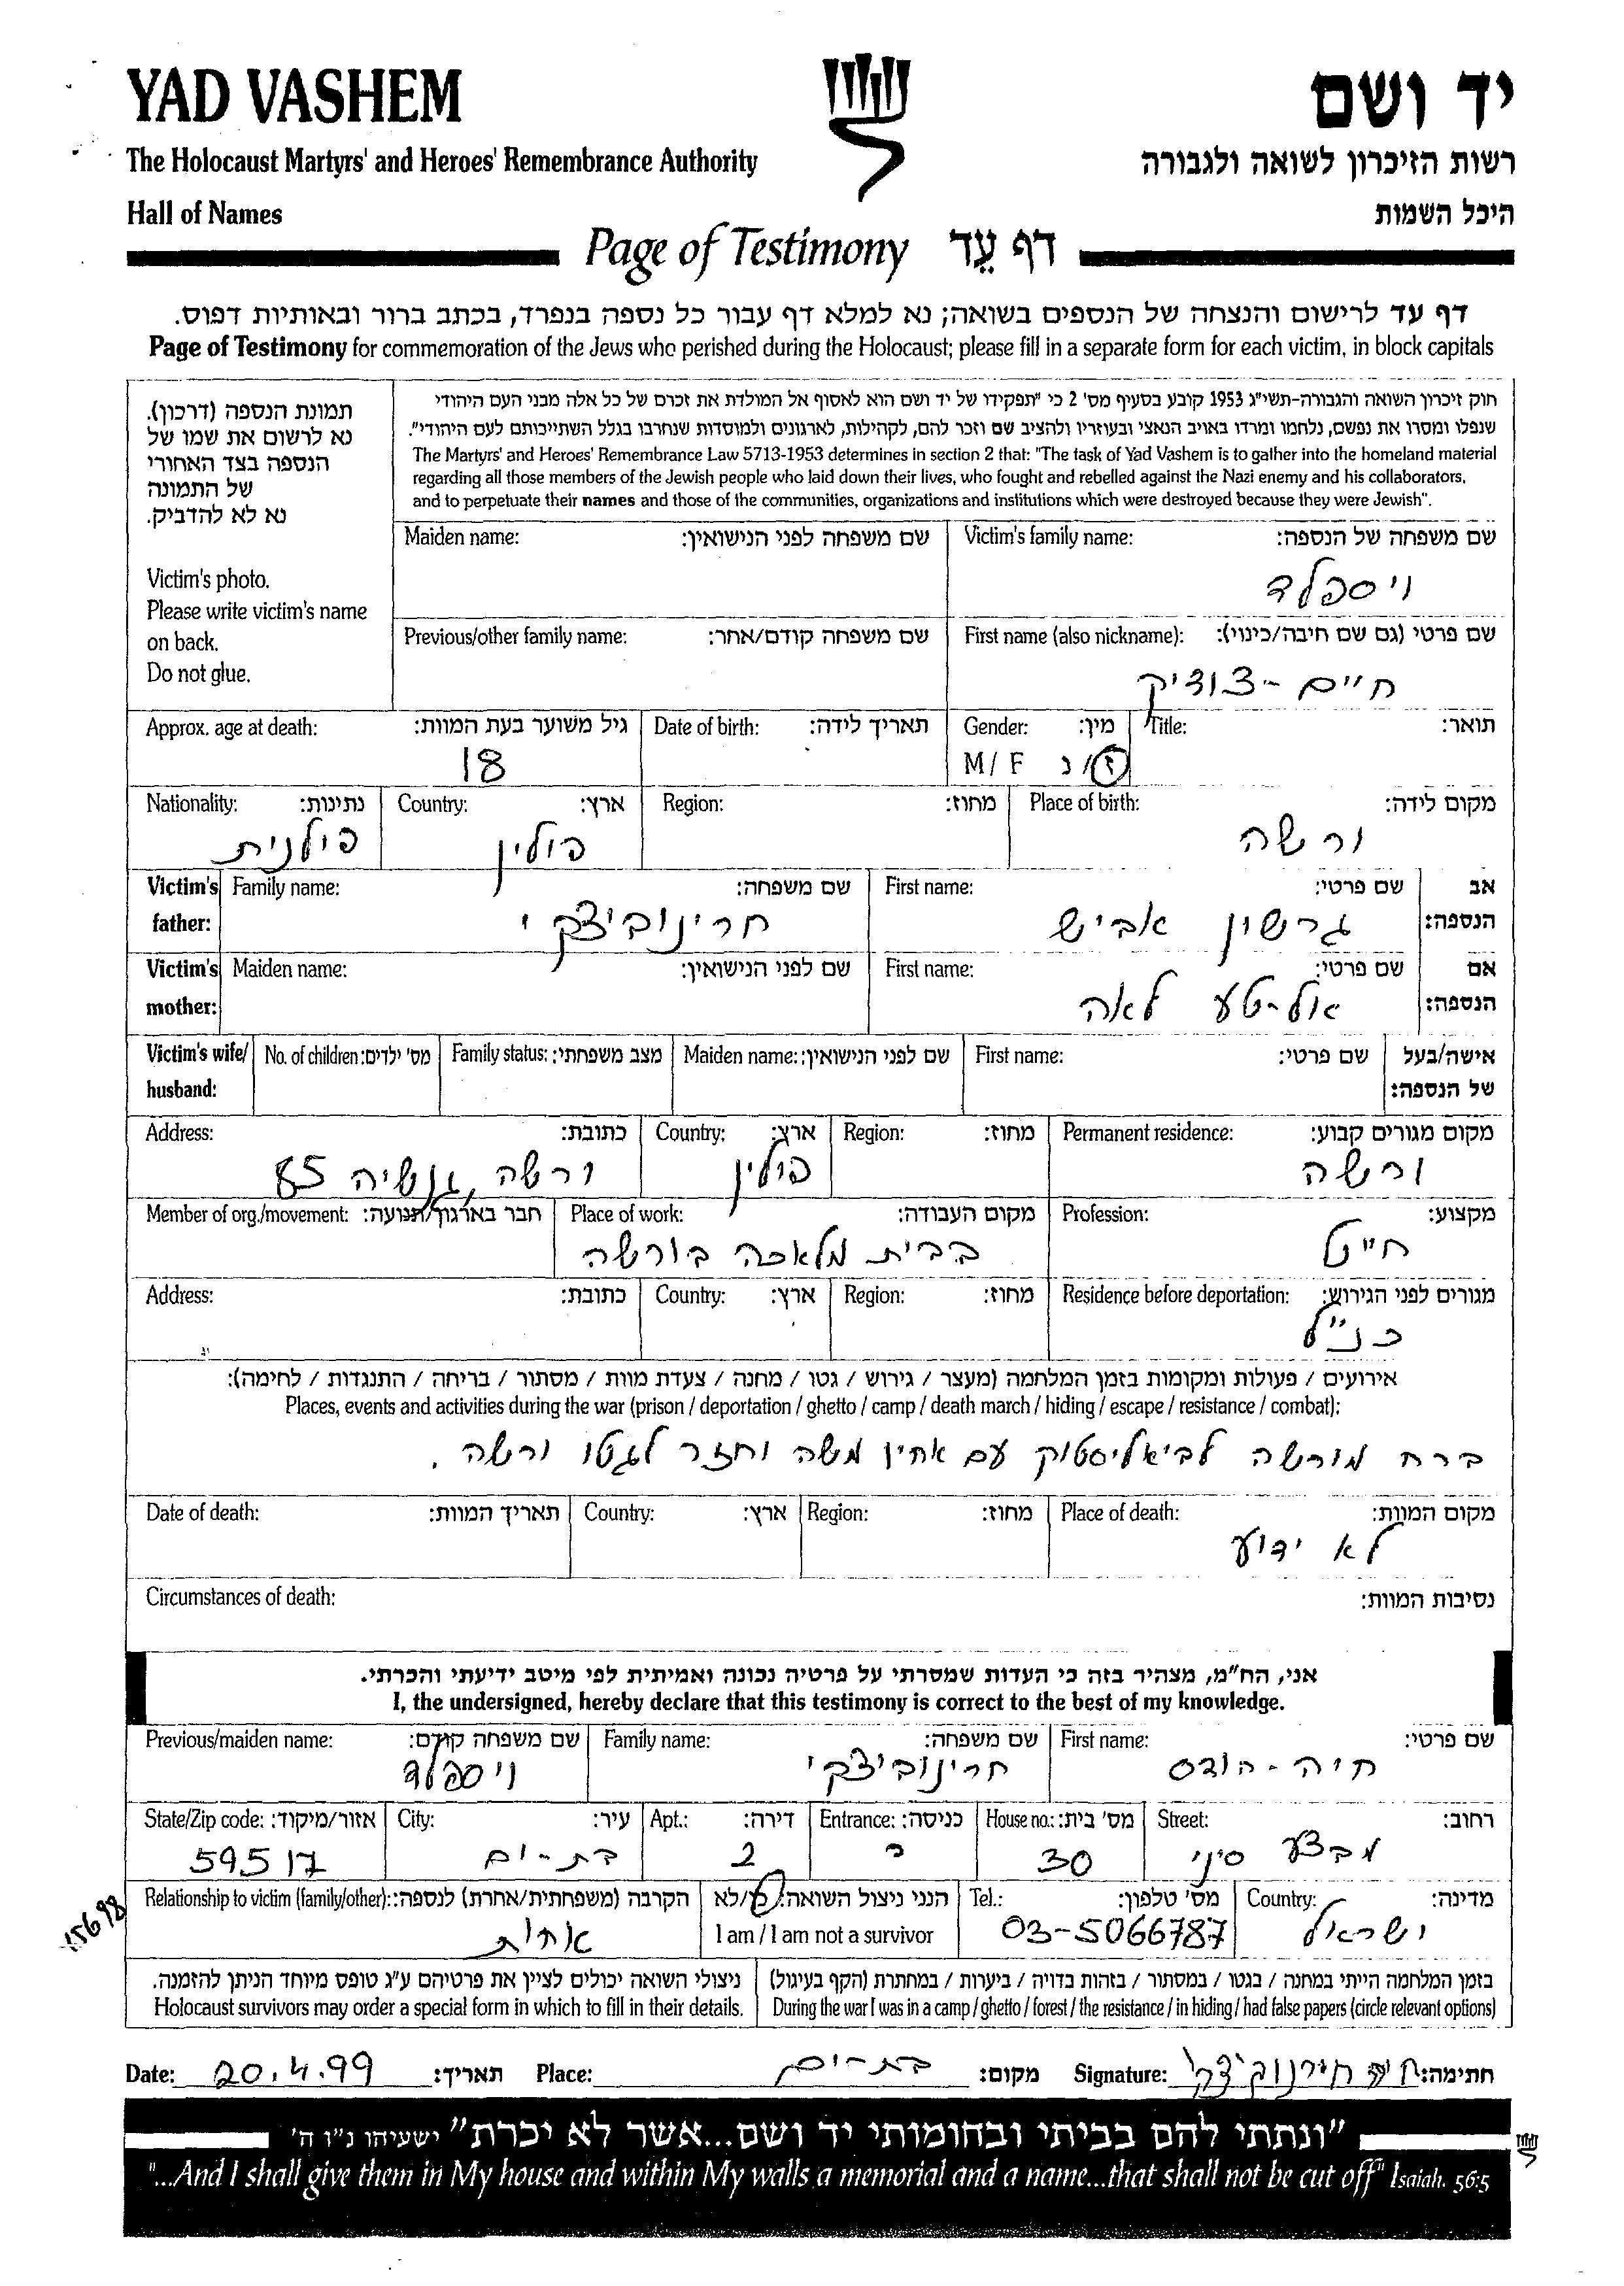 YAD VASHEM
יד ושם
The Holocaust Martyrs' and Heroes' Remembrance Authority
רשות הזיכרון לשואה ולגבורה
Hall of Names
היכל השמות
Page of Testimony דף עֵד
דף עד לרישום והנצחה של הנספים בשואה; נא למלא דף עבור כל נספה בנפרד, בכתב ברור ובאותיות דפוס.
Page of Testimony for commemoration of the Jews who perished during the Holocaust; please fill in a separate form for each victim, in block capitals
תמונת הנספה (דרכון).
נא לרשום את שמו של
הנספה בצד האחורי
של התמונה
נא לא להדביק.
Victim's photo.
Please write victim's name
on back.
Do not glue.
חוק זיכרון השואה והגבורה-תשי"ג 1953 קובע בסעיף מס' 2 כי "תפקידו של יד ושם הוא לאסוף אל המולדת את זכרם של כל אלה מבני העם היהודי
שנפלו ומסרו את נפשם, נלחמו ומרדו באויב הנאצי ובעוזריו ולהציב שם וזכר להם, לקהילות, לארגונים ולמוסדות שנחרבו בגלל השתייכותם לעם היהודי".
The Martyrs' and Heroes' Remembrance Law 5713-1953 determines in section 2 that: "The task of Yad Vashem is to gather into the homeland material
regarding all those members of the Jewish people who laid down their lives, who fought and rebelled against the Nazi enemy and his collaborators,
and to perpetuate their names and those of the communities, organizations and institutions which were destroyed because they were Jewish".
Victim's family name: שם משפחה של הנספה:
ויספלד
Maiden name: שם משפחה לפני הנישואין:
First name (also nickname): שם פרטי (גם שם חיבה/כינוי):
חיים-צודיק
Previous/other family name: שם משפחה קודם/אחר:
Title: תואר:
Gender: מין:
M/ F ז/נ
Date of birth: תאריך לידה:
Approx. age at death: גיל משוער בעת המוות:
18
Place of birth: מקום לידה:
ורשה
Region: מחוז:
Country: ארץ:
פולין
Nationality: נתינות:
פילנית
Victim's father: אב הנספה:
First name: שם פרטי:
גרשון אביש
Family name: שם משפחה:
חרינוביצקי
Victim's mother: אם הנספה:
First name: שם פרטי:
אל-טע לאה
Maiden name: שם לפני הנישואין:
Victim's wife/ husband: אישה/בעל של הנספה:
First name: שם פרטי:
Maiden name: שם לפני הנישואין:
Family status: מצב משפחתי:
No. of children: מס' ילדים:
Permanent residence: מקום מגורים קבוע:
ורשה
Region: מחוז:
Country: ארץ:
פולין
Address: כתובת:
ורשה, גנשיה 85
Profession: מקצוע:
חייט
Place of work: מקום העבודה:
בבית מלאכה בורשה
Member of org./movement: חבר בארגון/תנועה:
Residence before deportation: מגורים לפני הגירוש:
כנ"ל
Region: מחוז:
Country: ארץ:
Address: כתובת:
אירועים / פעולות ומקומות בזמן המלחמה (מעצר / גירוש / גטו / מחנה / צעדת מוות / מסתור / בריחה / התנגדות / לחימה):
Places, events and activities during the war (prison / deportation / ghetto / camp / death march / hiding / escape / resistance / combat):
ברח מורשה לביאליסטוק עם אחין משה וחזר לגטו ורשה.
Place of death: מקום המוות:
לא ידוע
Region: מחוז:
Country: ארץ:
Date of death: תאריך המוות:
Circumstances of death: נסיבות המוות:
אני, הח"מ, מצהיר בזה כי העדות שמסרתי על פרטיה נכונה ואמיתית לפי מיטב ידיעתי והכרתי.
I, the undersigned, hereby declare that this testimony is correct to the best of my knowledge.
First name: שם פרטי:
חיה-הודס
Family name: שם משפחה:
חרינוביצקי
Previous/maiden name: שם משפחה קודם:
ויספלד
Street: רחוב:
מבצע סיני
House no.: מס' בית:
30
Entrance: כניסה:
Apt.: דירה:
2
City: עיר:
בת-ים
State/Zip code: אזור/מיקוד:
59517
Country: מדינה:
ישראל
Tel.: מס' טלפון:
03-5066787
הנני ניצול השואה: כן/לא
I am / I am not a survivor
Relationship to victim (family/other): הקרבה (משפחתית/אחרת) לנספה:
אחות
15698
בזמן המלחמה הייתי במחנה / בגטו / במסתור / בזהות בדויה / ביערות / במחתרת (הקף בעיגול)
During the war I was in a camp / ghetto / forest / the resistance / in hiding / had false papers (circle relevant options)
ניצולי השואה יכולים לציין את פרטיהם ע"ג טופס מיוחד הניתן להזמנה.
Holocaust survivors may order a special form in which to fill in their details.
Date: 20.4.99 תאריך:
Place: בת-ים מקום:
Signature: חיה חרינוביצקי חתימה:
"ונתתי להם בביתי ובחומותי יד ושם...אשר לא יכרת" ישעיהו נ"ו ה'
"...And I shall give them in My house and within My walls a memorial and a name...that shall not be cut off" Isaiah. 56:5